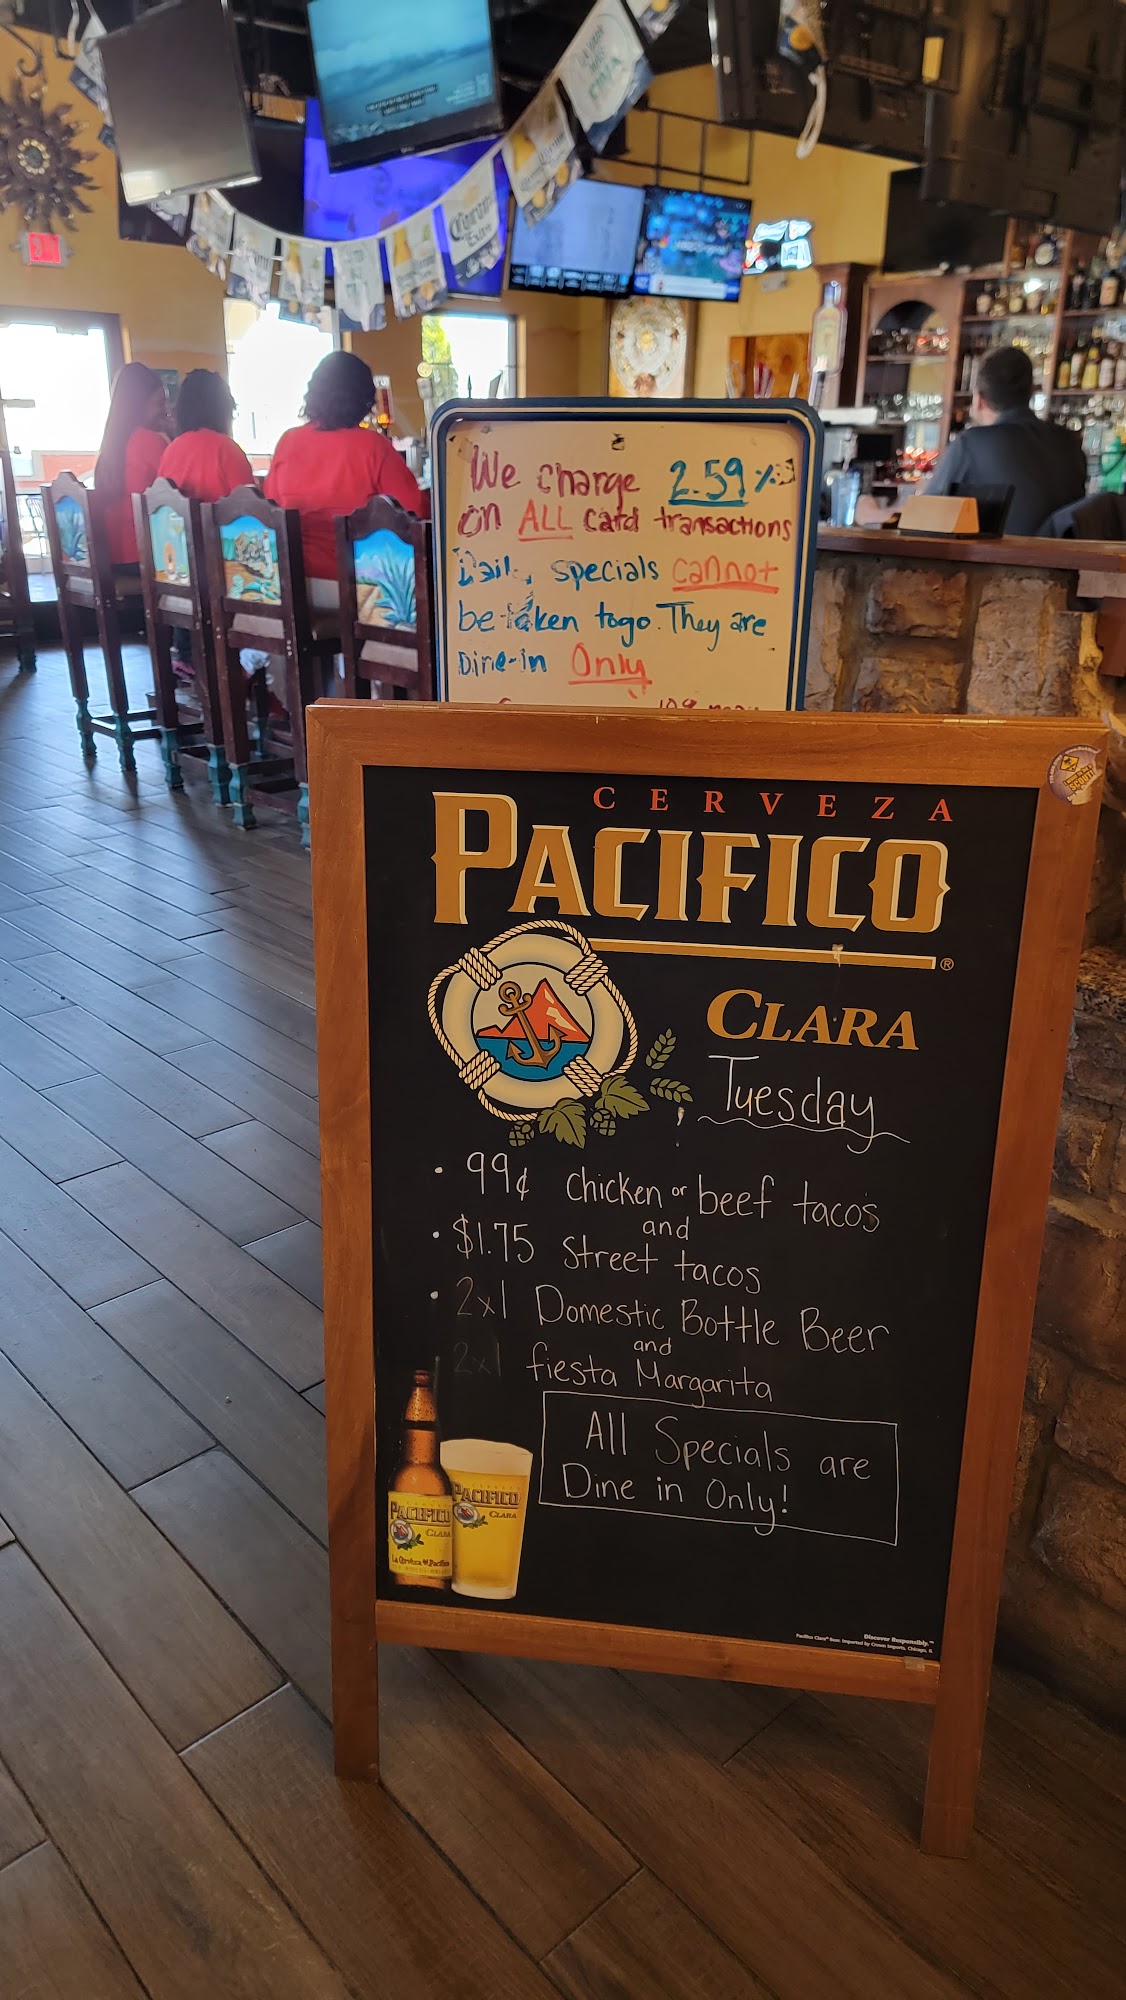 We charge 2.59%
on ALL card transactions
Daily specials cannot
be taken togo. They are
Dine-in Only
CERVEZA
PACIFICO
®
CLARA
Tuesday
• 99¢ chicken or beef tacos
and
• $1.75 Street tacos
• 2x1 Domestic Bottle Beer
and
2x1 fiesta Margarita
All Specials are
Dine in Only!
PACIFICO
CLARA
PACIFICO
CLARA
La Cerveza del Pacifico
Discover Responsibly.™
Pacifico Clara® Beer. Imported by Crown Imports, Chicago, IL